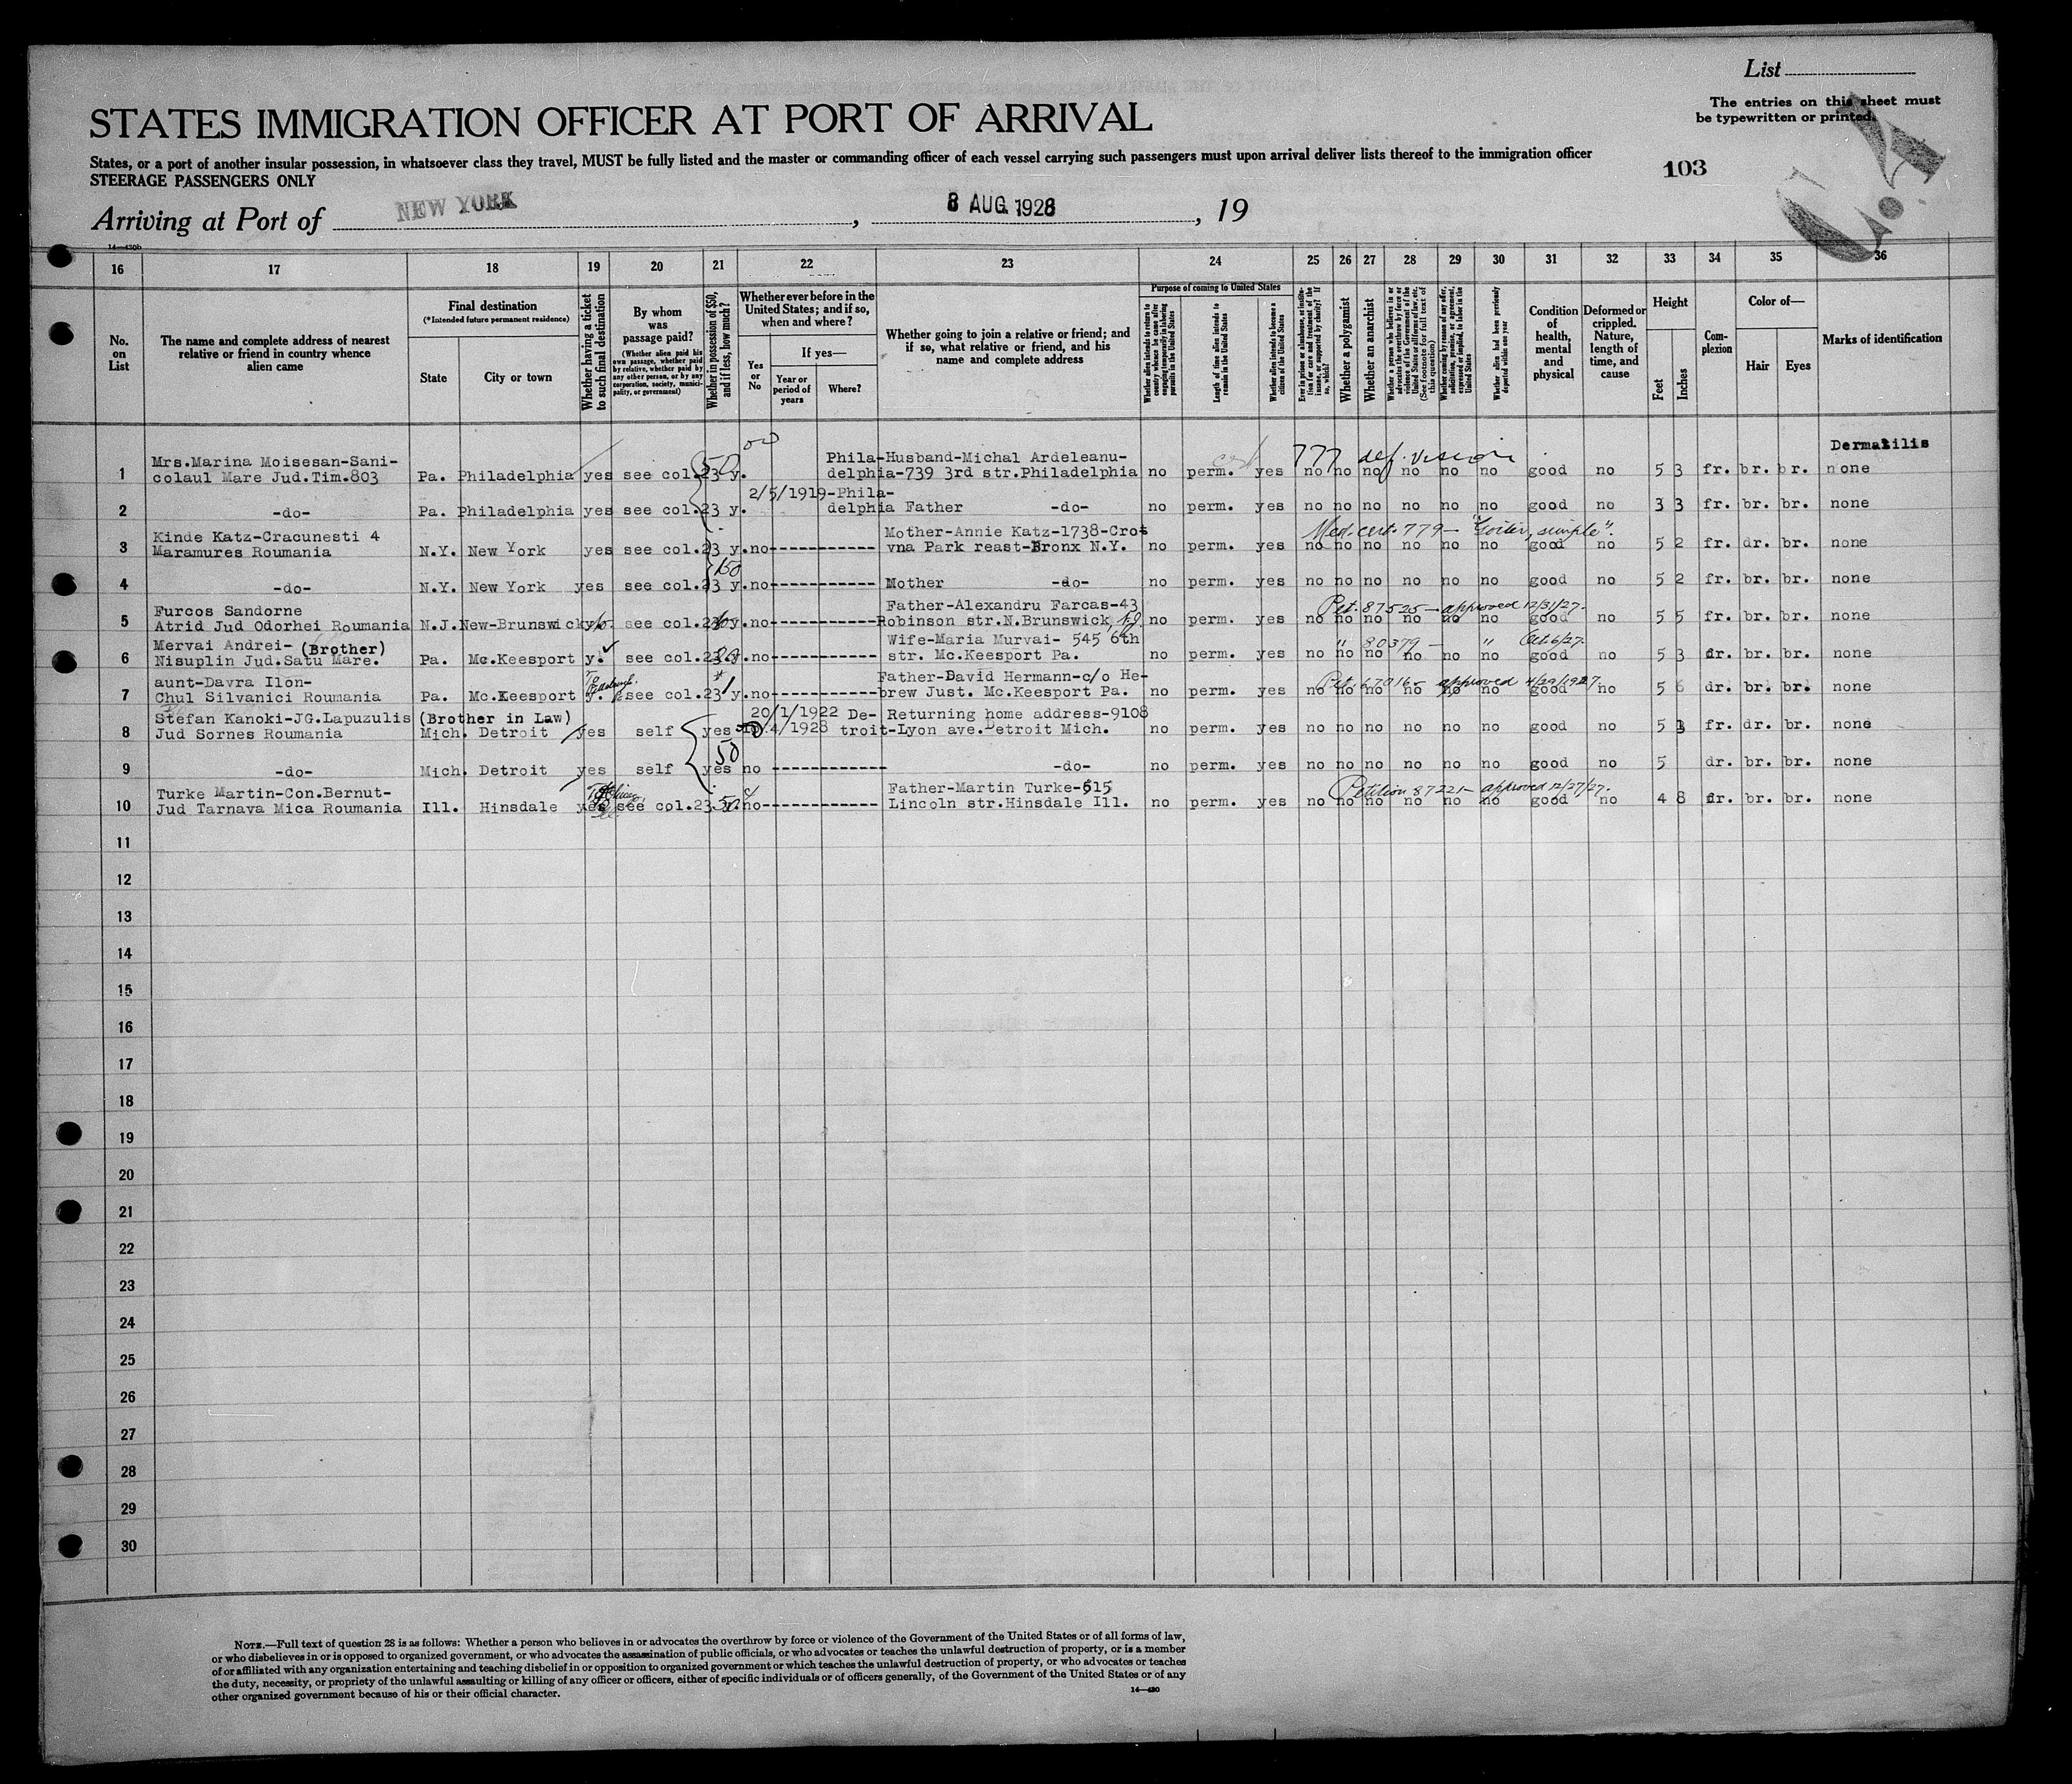 List
The entries on this sheet must
be typewritten or printed.
STATES IMMIGRATION OFFICER AT PORT OF ARRIVAL
States, or a port of another insular possession, in whatsoever class they travel, MUST be fully listed and the master or commanding officer of each vessel carrying such passengers must upon arrival deliver lists thereof to the immigration officer
STEERAGE PASSENGERS ONLY
103
Arriving at Port of NEW YORK, 8 AUG 1928, 19
16 17 18 19 20 21 22 23 24 25 26 27 28 29 30 31 32 33 34 35 36
No. on List
The name and complete address of nearest relative or friend in country whence alien came
Final destination
(*Intended future permanent residence)
State
City or town
Whether having a ticket to such final destination
By whom was passage paid?
(Whether alien paid his own passage, whether paid by relative, whether paid by any other person, or by any corporation, society, municipality, or government)
Whether in possession of $50, and if less, how much?
Whether ever before in the United States; and if so, when and where?
Yes or No
If yes—
Year or period of years
Where?
Whether going to join a relative or friend; and if so, what relative or friend, and his name and complete address
Purpose of coming to United States
Length of time alien intends to remain in the United States
Whether alien intends to become a citizen of the United States
Whether a polygamist
Whether an anarchist
Condition of health, mental and physical
Deformed or crippled. Nature, length of time, and cause
Height
Feet
Inches
Complexion
Color of—
Hair
Eyes
Marks of identification
Dermatilis
777 def. vision
Mrs.Marina Moisesan-Sani- Phila-Husband-Michal Ardeleanu-
1 colaul Mare Jud.Tim.803 Pa. Philadelphia yes see col.23 y. delphia-739 3rd str.Philadelphia no perm. yes no no no no no no good no 5 3 fr. br. br. none
2/5/1919-Phila-
2 -do- Pa. Philadelphia yes see col.23 y. delphia Father -do- no perm. yes no no no no no no good no 3 3 fr. br. br. none
Kinde Katz-Cracunesti 4 Mother-Annie Katz-1738-Crot Med. cert. 779- "Goiter, simple".
3 Maramures Roumania N.Y. New York yes see col.23 y.no vna Park reast-Bronx N.Y. no perm. yes no no no no no no good no 5 2 fr. dr. br. none
150
4 -do- N.Y. New York yes see col.23 y.no Mother -do- no perm. yes no no no no no no good no 5 2 fr. br. br. none
Furcos Sandorne Father-Alexandru Farcas-43 Pet. 87525- approved 12/31/27.
5 Atrid Jud Odorhei Roumania N.J. New-Brunswick see col. y.no Robinson str.N.Brunswick no perm. yes no no no no no no good no 5 5 fr. br. br. none
Mervai Andrei- (Brother) Wife-Maria Murvai- 545 6th " 80379 - " Oct 6/27.
6 Nisuplin Jud.Satu Mare. Pa. Mc.Keesport y. see col.23 y.no str. Mc.Keesport Pa. no perm. yes no no no no no no good no 5 3 dr. br. br. none
aunt-Davra Ilon- Father-David Hermann-c/o He- Pet. 67016- approved 4/29/1927.
7 Chul Silvanici Roumania Pa. Mc.Keesport y. see col.23 y.no brew Just. Mc.Keesport Pa. no perm. yes no no no no no no good no 5 6 dr. br. br. none
Stefan Kanoki-JG.Lapuzulis (Brother in Law) 20/1/1922 De- Returning home address-9108
8 Jud Sornes Roumania Mich. Detroit yes self yes 4/1928 troit-Lyon ave.Detroit Mich. no perm. yes no no no no no no good no 5 3 fr. dr. br. none
50
9 -do- Mich. Detroit yes self yes no -do- no perm. yes no no no no no no good no 5 dr. br. br. none
Turke Martin-Con.Bernut- Father-Martin Turke-515 Petition 87221- approved 12/27/27.
10 Jud Tarnava Mica Roumania Ill. Hinsdale yes see col.23 no Lincoln str.Hinsdale Ill. no perm. yes no no no no no no good no 4 8 dr. br. br. none
11
12
13
14
15
16
17
18
19
20
21
22
23
24
25
26
27
28
29
30
NOTE.—Full text of question 28 is as follows: Whether a person who believes in or advocates the overthrow by force or violence of the Government of the United States or of all forms of law,
or who disbelieves in or is opposed to organized government, or who advocates the assassination of public officials, or who advocates or teaches the unlawful destruction of property, or is a member
of or affiliated with any organization entertaining and teaching disbelief in or opposition to organized government or which teaches the unlawful destruction of property, or who advocates or teaches
the duty, necessity, or propriety of the unlawful assaulting or killing of any officer or officers, either of specific individuals or of officers generally, of the Government of the United States or of any
other organized government because of his or their official character.
14—430